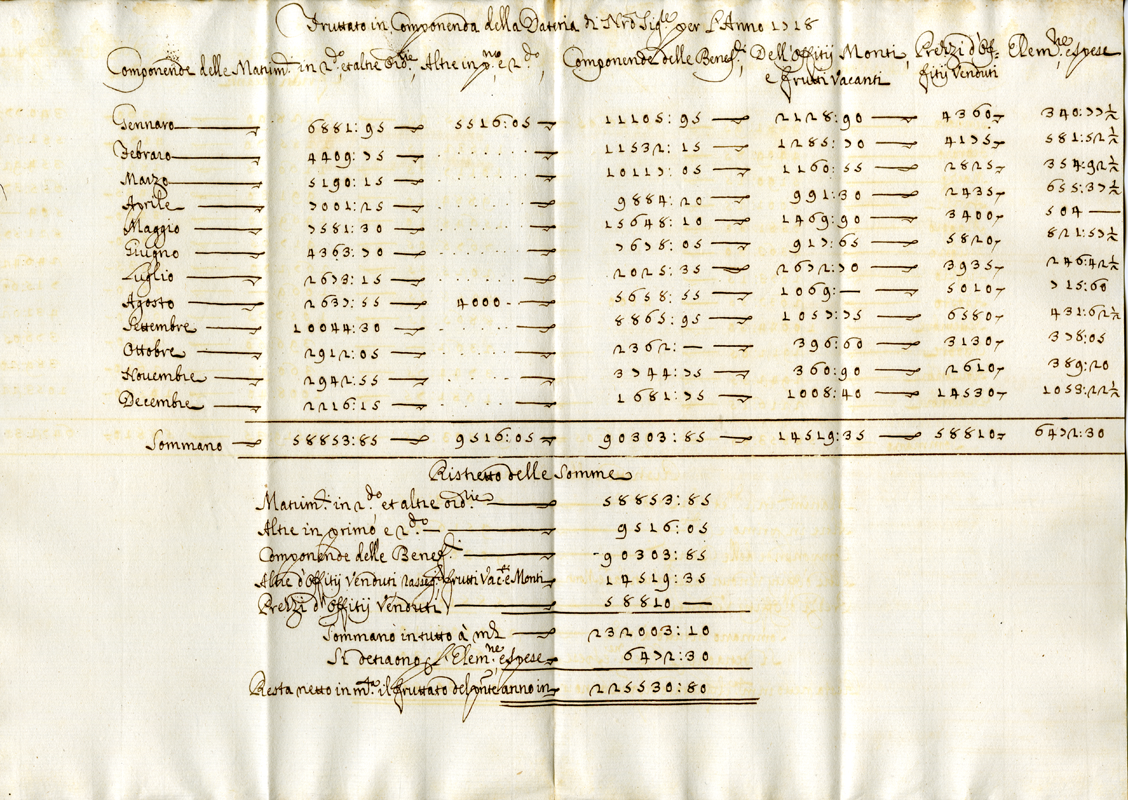 Fruttato in Componenda della Dateria di Nro Sigre per l'Anno 1718
Componende delle Matrim.li in 2do, et altre ordie, Altre in p.mo e 2.do, Componende delle Benef.ti, Dell'Offitij Monti, e frutti Vacanti Prezzi d'Offitij Venduti Elem.ne, e spese
Gennaro 6881:95 5516:05 11105:95 2128:90 4360 340:77½
Febraro 4409:75 ....... 11532:15 1285:70 4175 581:52½
Marzo 5190:15 ....... 10117:05 1160:55 2825 354:92½
Aprile 7001:25 ....... 9884:20 991:30 2435 655:37½
Maggio 7581:30 ....... 15648:10 1469:90 3400 504 —
Giugno 4363:70 ....... 7678:05 917:65 5820 821:57½
Luglio 2673:15 ....... 2025:35 2672:70 3935 246:42½
Agosto 2637:55 4000 - 5658:55 1069:— 5010 715:60
Settembre 10044:30 ....... 8865:95 1057:75 6580 431:62½
Ottobre 2912:05 ....... 2362:— 396:60 3130 378:05
Novembre 2942:55 ....... 3744:75 360:90 2610 389:20
Decembre 2216:15 ....... 1681:75 1008:40 14530 1053:22½
Sommano 58853:85 9516:05 90303:85 14519:35 58810 6472:30
Ristretto delle Somme
Matrim.li in 2.do, et altre ord.rie 58853:85
Altre in primo e 2.do 9516:05
Componende delle Benef.ti 90303:85
Altre d'offitij Venduti rasseg.ti frutti Vac.ti e Monti 14519:35
Prezzi d'Offitij Venduti 58810 —
Sommano in tutto à m.ta 232003:10
Si detraono p. l'Elem.ne, e spese 6472:30
Resta netto in m.ta il fruttato del pnte anno in 225530:80